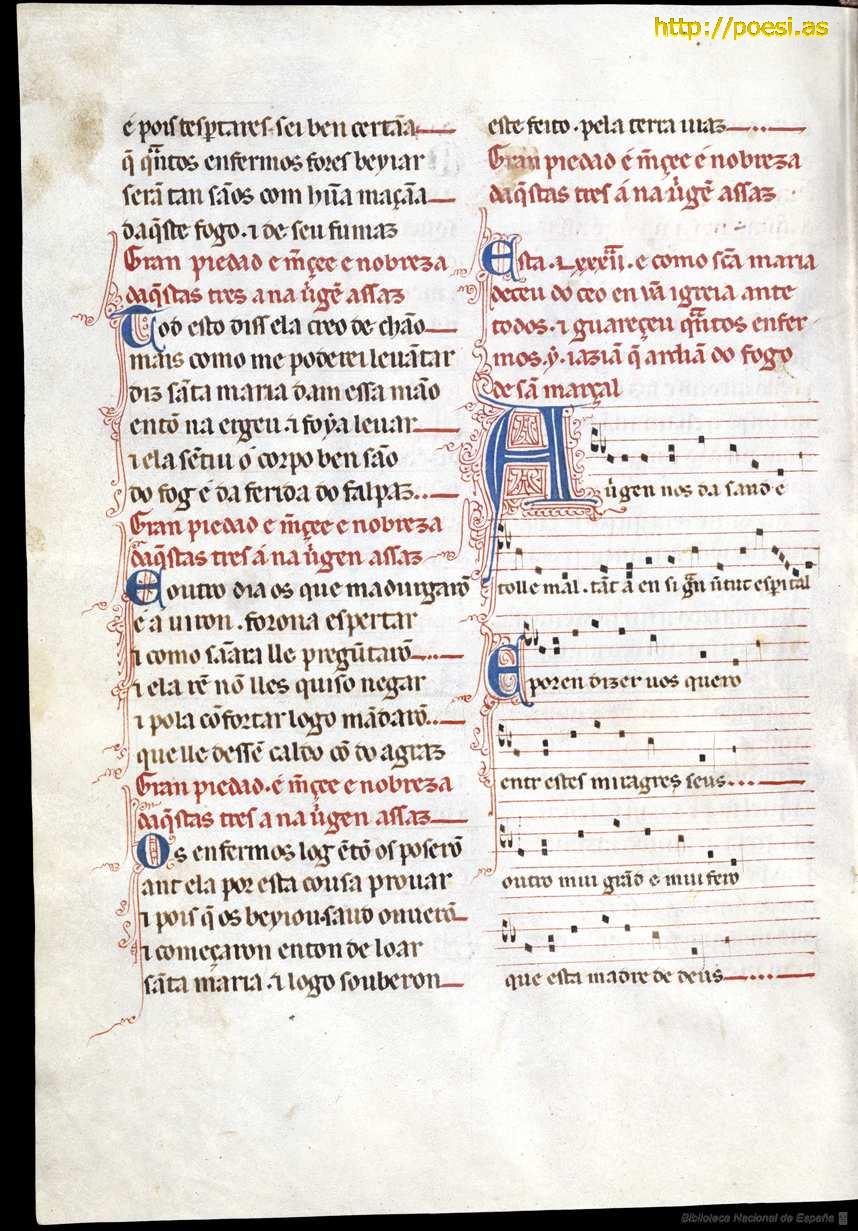 http://poesi.as
e pois tesp̃tares. sei ben certãa
q̃ q̃ntos enfermos fores beyiar
serã tan sãos com hũa maçãa
daq̃ste fogo. ⁊ de seu fumaz
Gran piedad e m̃çee e nobreza
daq̃stas tres a na uirgẽ assaz
Tod esto diss ela creo de chão
mais como me poderei leuãtar
diz sãta maria dam essa mão
entõ na ergeu ⁊ foya leuar
⁊ ela sẽtiu o corpo ben são
do fog e da ferida do falpaz..
Gran piedad e m̃çee e nobreza
daq̃stas tres á na uirgen assaz
E outro dia os que madurgarõ
e a uiron. forona espertar
⁊ como sãara lle pregũtarõ....
⁊ ela rẽ nõ lles quiso negar
⁊ pola cõfortar logo mãdarõ..
que lle dessẽ caldo cõ do agraz
Gran piedad. e m̃çee e nobreza
daq̃stas tres a na uirgen assaz
Os enfermos log ẽtõ os poserõ
ant ela por esta cousa prouar
⁊ pois q̃ os beyiou. saud ouuerõ
⁊ começaron enton de loar
sãta maria. ⁊ logo souberon
este feito. pela terra uiaz
Gran piedad e m̃çee e nobreza
daq̃stas tres á na uirgẽ assaz
Esta. i. lxxxii. e como scã maria
deceu do ceo en ũa igreia ante
todos. ⁊ guareçeu q̃ntos enfer
mos. y. iaziã q̃ ardiã do fogo
de sã marçal
A uirgen nos da saud e
tolle mal. tãt á en si grã uertut esp̃ital
E poren dizer uos quero
entr estes miragres seus....
outro mui grãd e mui fero
que esta madre de deus
Biblioteca Nacional de España